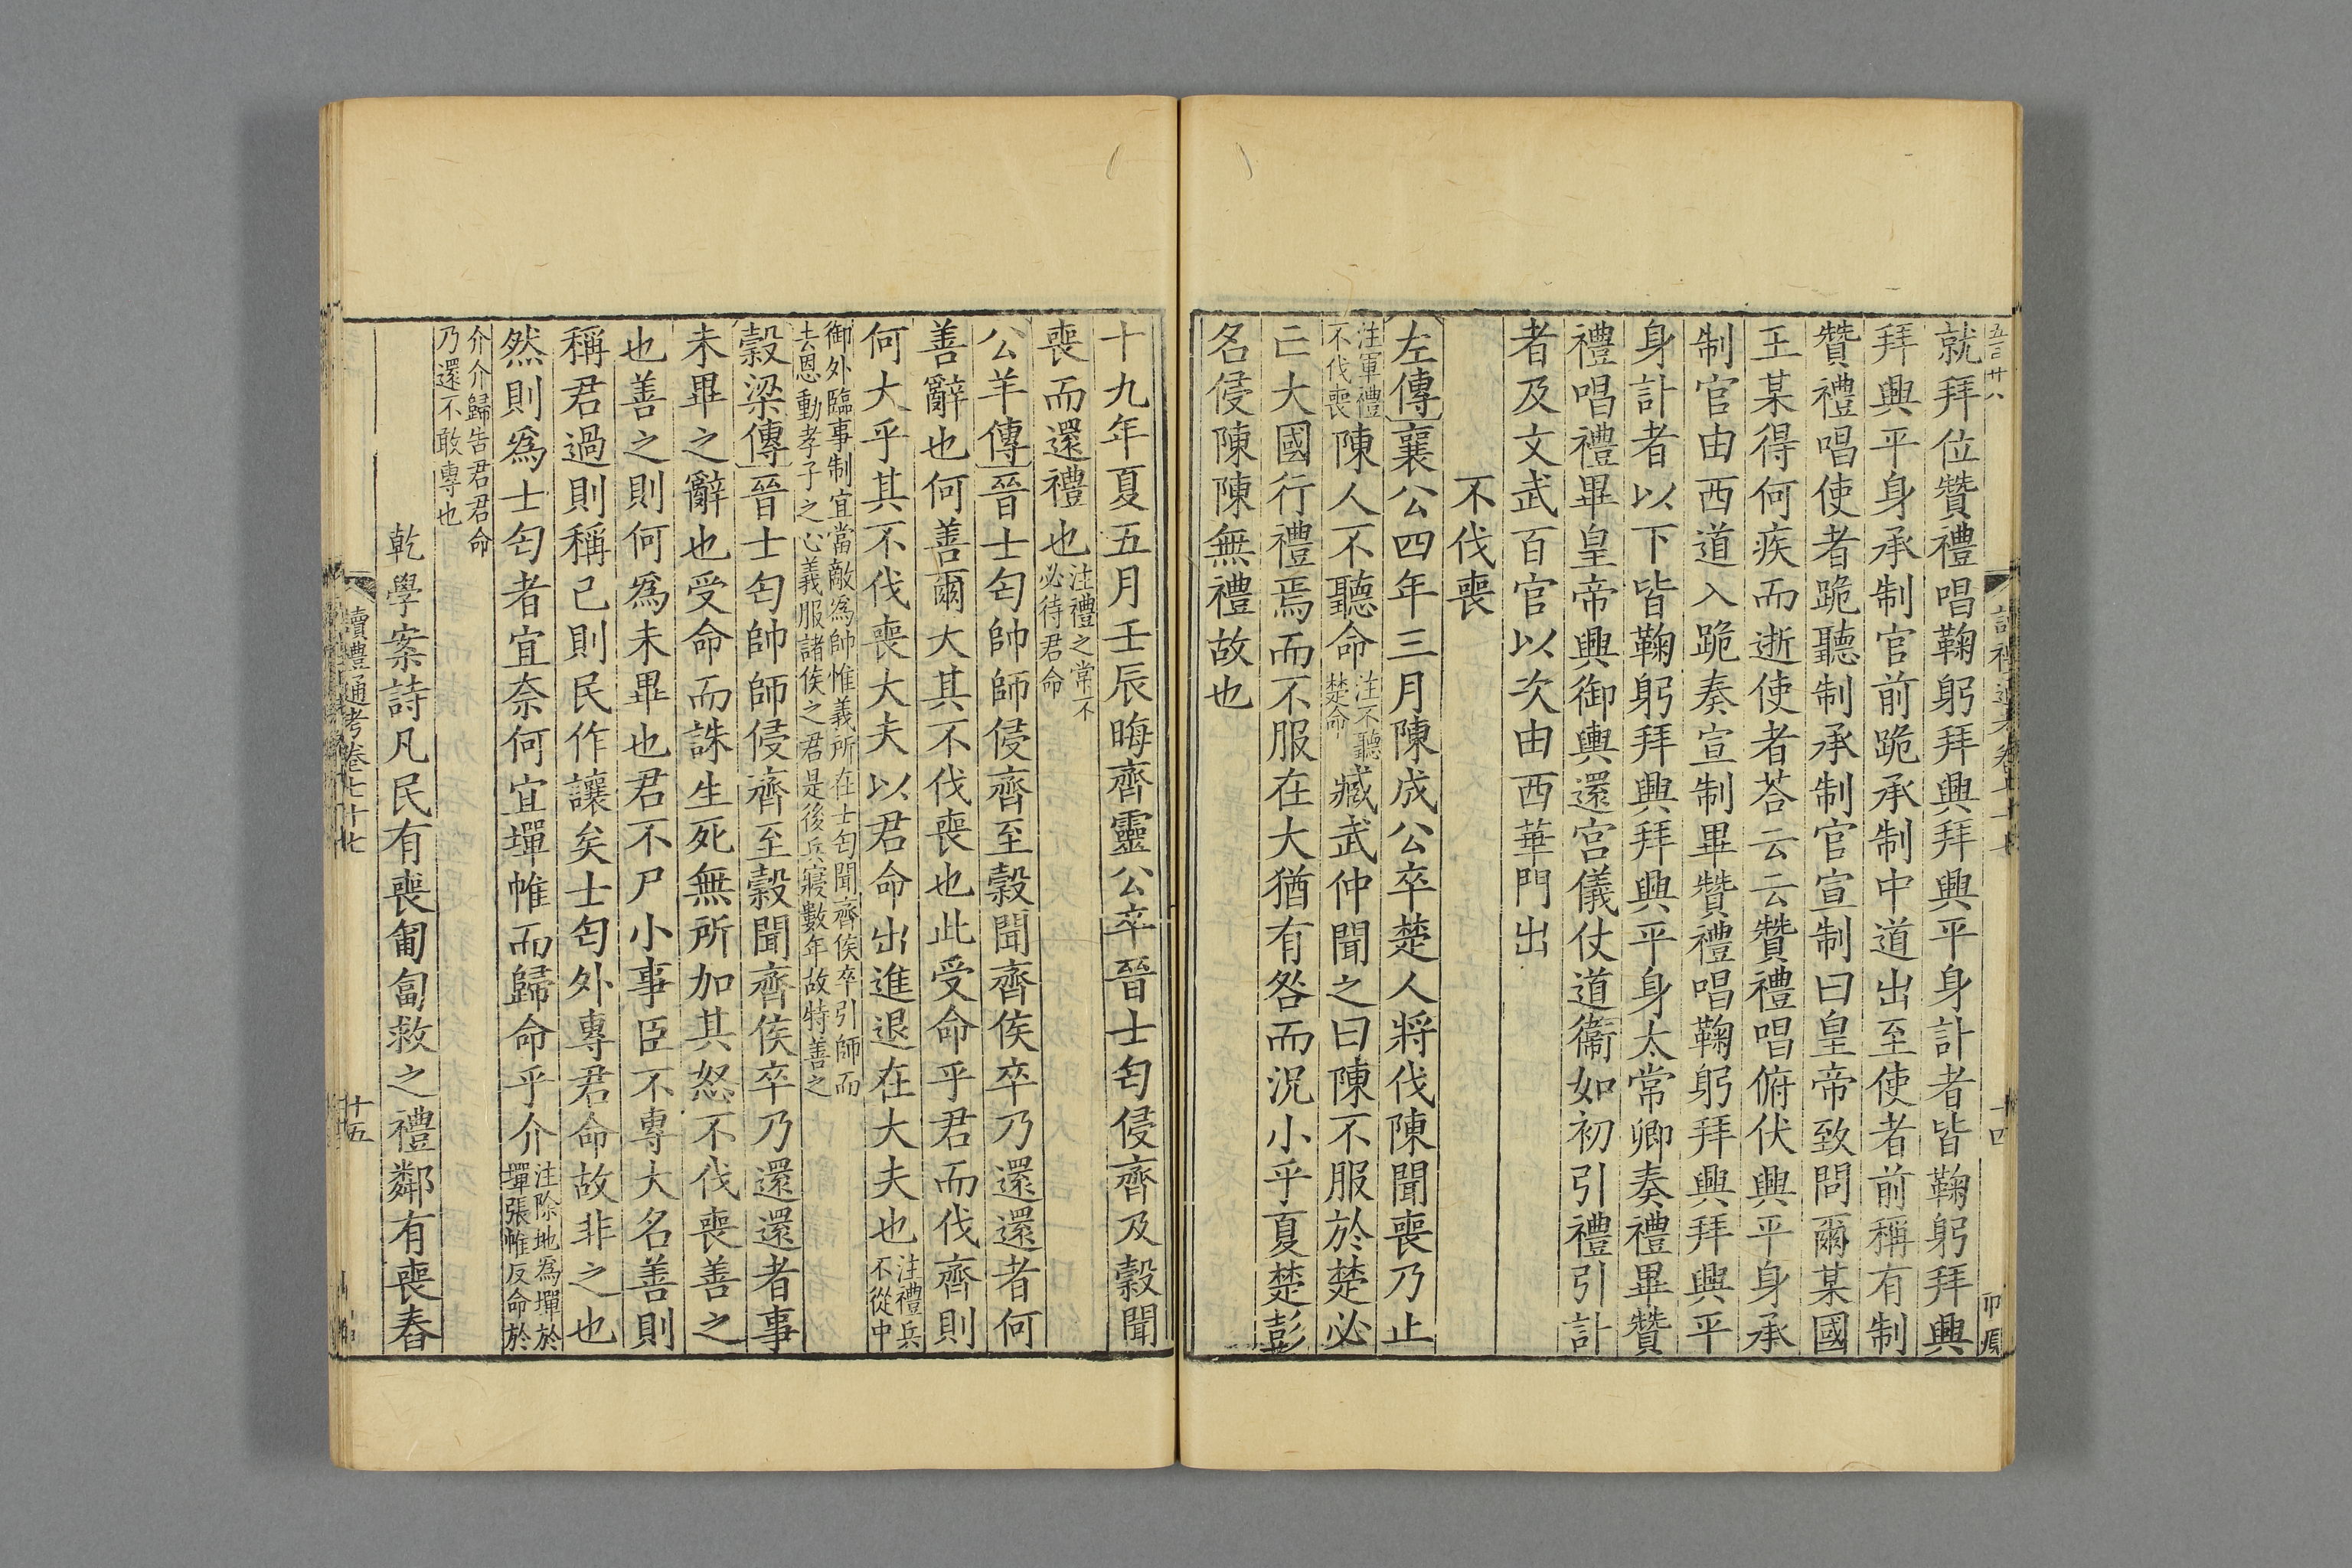 就拜位贊禮唱鞠躬拜興拜興平身計者皆鞠躬拜興
拜興平身承制官前跪承制中道出至使者前稱有制
贊禮唱使者跪聽制承制官宣制曰皇帝致問爾某國
王某得何疾而逝使者荅云云贊禮唱俯伏興平身承
制官由西道入跪奏宣制畢贊禮唱鞠躬拜興拜興平
身計者以下皆鞠躬拜興拜興平身太常卿奏禮畢贊
禮唱禮畢皇帝興御輿還宮儀仗道衞如初引禮引計
者及文武百官以次由西華門出
不伐喪
左傳襄公四年三月陳成公卒楚人將伐陳聞喪乃止
注軍禮
不伐喪
陳人不聽命
注不聽
楚命
臧武仲聞之曰陳不服於楚必
亡大國行禮焉而不服在大猶有咎而況小乎夏楚彭
名侵陳陳無禮故也
十九年夏五月壬辰晦齊靈公卒晉士匄侵齊及穀聞
喪而還禮也
注禮之常不
必待君命
公羊傳晉士匄帥師侵齊至穀聞齊侯卒乃還還者何
善辭也何善爾大其不伐喪也此受命乎君而伐齊則
何大乎其不伐喪大夫以君命出進退在大夫也
注禮兵
不從中
御外臨事制宜當敵為帥惟義所在士匄聞齊侯卒引師而
去恩動孝子之心義服諸侯之君是後兵寢數年故特善之
穀梁傳晉士匄帥師侵齊至穀聞齊侯卒乃還還者事
未畢之辭也受命而誅生死無所加其怒不伐喪善之
也善之則何爲未畢也君不尸小事臣不專大名善則
稱君過則稱己則民作讓矣士匄外專君命故非之也
然則爲士匄者宜奈何宜墠帷而歸命乎介
注除地為墠於
墠張帷反命於
介介歸告君君命
乃還不敢專也
乾學案詩凡民有喪匍匐救之禮鄰有喪舂
讀禮通考卷七十七
十五